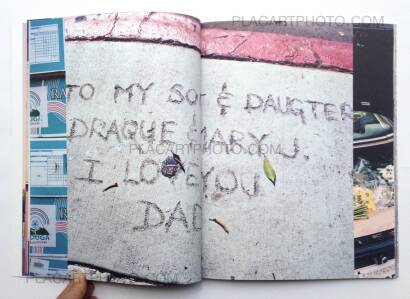 PLACARTPHOTO.COM
TO MY SO & DAUGTER
DRAQUE & MARY J.
PLACARTPHOTO.COM
I LOVE YOU
DAD
PLACARTPHOTO.COM